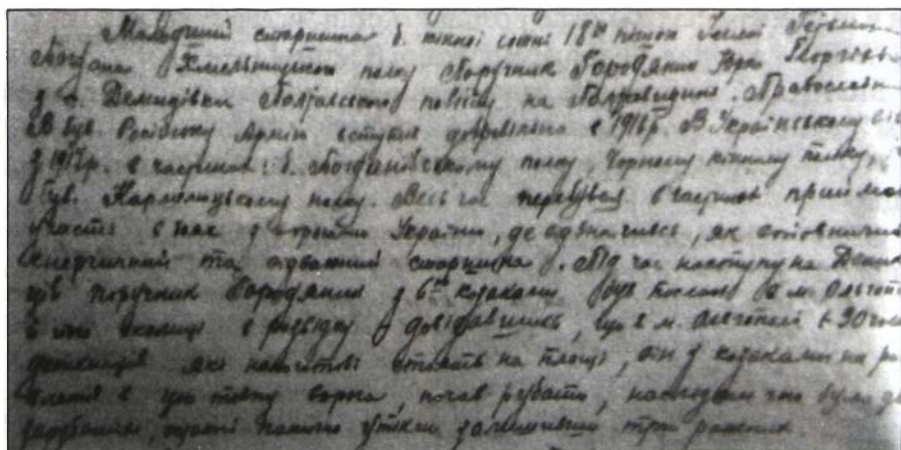 Молодший старшина б. кінної сотні 18го пішого Імені Гетьмана
Богдана Хмельницького полку Поручник Городянин Юра Георгієв
з с. Демидівки Полтавського повіту на Полтавщині. Православн
В був. Російську Армію вступив добровільно в 1916 р. В Українському
з 1917 р. в частинах: б. Богданівському полку, Чорному кінному полку,
був. Кармелюцькому полку. Весь час перебував в частинах приймав
участь в боях з ворогами України, де відзначився, як
енергичний та відважний старшина. Під час наступу на Денікін
ців поручник Городянин з 6ма козаками був посланий в м. Ольгопіль
в розвідку довідавшись, що в м. Ольгополі є 30
денікінців які стоять на площі, він з козаками
в цю ворога, почав рубати, наслідком чого було
зарубаних, решта панично утікли залишивши три